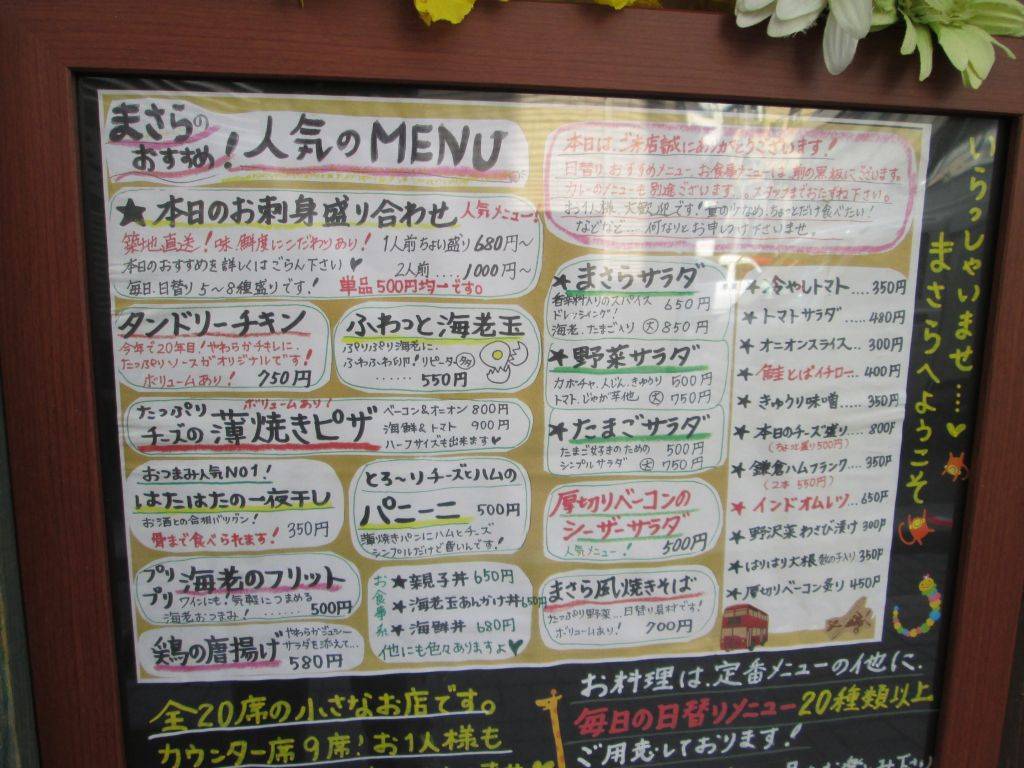 まさらの
おすすめ!
人気のMENU
★本日のお刺身盛り合わせ 人気メニュー!
築地直送!味、鮮度にこだわりあり! 1人前ちょい盛り 680円〜
本日のおすすめを詳しくはごらん下さい♥ 2人前....1000円〜
毎日、日替り5〜8種盛りです! 単品500円均一です。
タンドリーチキン
今年で20年目!やわらかチキンに、
たっぷりソースがオリジナルです!
ボリュームあり! 750円
ふわっと海老玉
ぷりぷり海老に、
ふわふわ卵!リピーター多
...... 550円
ボリュームあり!
たっぷり
チーズの薄焼きピザ
ベーコン&オニオン 800円
海鮮&トマト 900円
ハーフサイズも出来ます♥
おつまみ人気NO1!
はたはたの一夜干し
お酒との合相バツグン!
骨まで食べられます! 350円
とろ〜りチーズとハムの
パニーニ 500円
薄焼きパンにハムとチーズ
シンプルだけど旨いんです!
プリプリ海老のフリット
ワインにも!気軽につまめる
海老おつまみ!........500円
鶏の唐揚げ
やわらかジューシー
サラダを添えて...
580円
お食事系
★親子丼 650円
★海老玉あんかけ丼 650円
★海鮮丼 680円
他にも色々ありますよ♥
本日は、ご来店誠にありがとうございます!
日替り おすすめメニュー、お食事メニューは、前の黒板にございます。
カレーのメニューも別途ございます。スタッフまでおたずね下さい。
お1人様、大歓迎です!量の少なめ、ちょっとだけ食べたい!
などなど...何なりとお申しつけ下さいませ。
★まさらサラダ
香辛料入りのスパイス 650円
ドレッシング!
海老、たまご入り 大850円
★野菜サラダ
カボチャ、人じん、きゅうり 500円
トマト、じゃが芋他 大750円
★たまごサラダ
たまご好きのための 500円
シンプルサラダ 大750円
厚切りベーコンの
シーザーサラダ
人気メニュー! 500円
まさら風焼きそば
たっぷり野菜、日替り具材です!
ボリュームあり! 700円
★冷やしトマト....350円
★トマトサラダ.....480円
★オニオンスライス...300円
★鮭とばイチロー...400円
★きゅうり味噌....350円
★本日のチーズ盛り...800円
(ちょい盛り500円)
★鎌倉ハムフランク....350円
(2本 550円)
★インドオムレツ...650円
★野沢菜わさび漬け 300円
★はりはり大根 数の子入り 350円
★厚切りベーコン炙り 450円
いらっしゃいませ...♥
まさらへようこそ
全20席の小さなお店です。
カウンター席9席!お1人様も
お料理は、定番メニューの他に、
毎日の日替りメニュー20種類以上
ご用意しております!